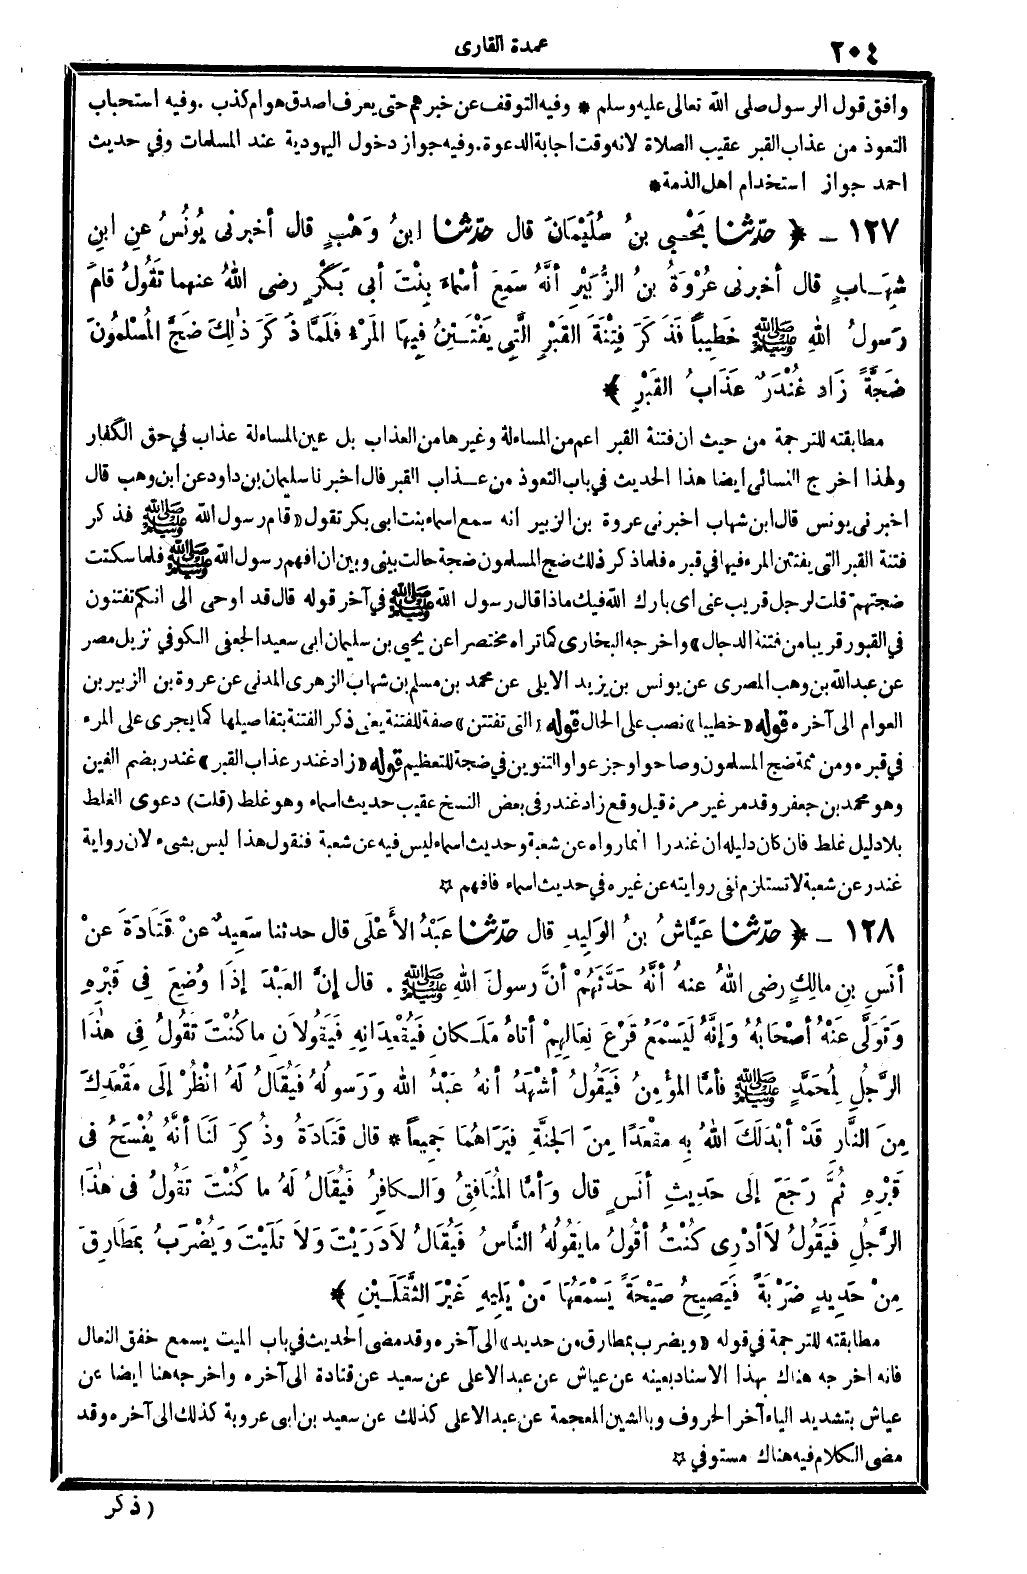 ٢٠٤
عمدة القارى
وافق قول الرسول صلى الله تعالى عليه وسلم * وفيه التوقف عن خبرهم حتى يعرف اصدق هو ام كذب . وفيه استحباب
التعوذ من عذاب القبر عقيب الصلاة لانه وقت اجابة الدعوة . وفيه جواز دخول اليهودية عند المسلمات وفي حديث
احمد جواز استخدام اهل الذمة *
١٢٧ ـ ﴿ حدّثنا يَحْيى بنُ سُلَيْمَانَ قال حدّثنا ابنُ وَهْبٍ قال أخبرنى يُونُسُ عنِ ابنِ
شِهَابٍ قال أخبرنى عُرْوَةُ بنُ الزُّبَيْرِ أنَّهُ سَمِعَ أسْماءَ بِنْتَ أبى بَكْرٍ رضى اللهُ عنهما تَقُولُ قامَ
رَسولُ اللهِ ﷺ خَطِيباً فَذَكَرَ فِتْنَةَ القَبْرِ الَّتِي يَفْتَتِنُ فِيهَا المَرْءُ فَلَمَّا ذَكَرَ ذٰلِكَ ضَجَّ المُسْلمُونَ
ضَجَّةً زَادَ غُنْدَرٌ عَذَابُ القَبْرِ ﴾
مطابقته للترجمة من حيث ان فتنة القبر اعم من المساءلة وغيرها من العذاب بل عين المساءلة عذاب في حق الكفار
ولهذا اخرج النسائى ايضا هذا الحديث في باب التعوذ من عذاب القبر قال اخبرنا سليمان بن داود عن ابن وهب قال
اخبرنى يونس قال ابن شهاب اخبرنى عروة بن الزبير انه سمع اسماء بنت ابى بكر تقول « قام رسول الله ﷺ فذكر
فتنة القبر التى يفتتن المرء فيها في قبره فلما ذكر ذلك ضج المسلمون ضجة حالت بينى وبين ان افهم رسول الله ﷺ فلما سكتت
ضجتهم قلت لرجل قريب عنى اى بارك الله فيك ماذا قال رسول الله ﷺ في آخر قوله قال قد اوحى الى انكم تفتنون
في القبور قريبا من فتنة الدجال » واخرجه البخارى كما تراه مختصرا عن يحيى بن سليمان ابى سعيد الجعفى الكوفي نزيل مصر
عن عبدالله بن وهب المصرى عن يونس بن يزيد الايلى عن محمد بن مسلم بن شهاب الزهرى المدنى عن عروة بن الزبير بن
العوام الى آخره قوله « خطيبا » نصب على الحال قوله « التى تفتتن » صفة للفتنة يعنى ذكر الفتنة بتفاصيلها كما يجرى على المرء
في قبره ومن ثمة ضج المسلمون وصاحوا وجزعوا والتنوين في ضجة للتعظيم قوله « زاد غندر عذاب القبر » غندر بضم الغين
وهو محمد بن جعفر وقد مر غير مرة قيل وقع زاد غندر في بعض النسخ عقيب حديث اسماء وهو غلط (قلت) دعوى الغلط
بلا دليل غلط فان كان دليله ان غندرا انما رواه عن شعبة وحديث اسماء ليس فيه عن شعبة فنقول هذا ليس بشىء لان رواية
غندر عن شعبة لا تستلزم نفى روايته عن غيره في حديث اسماء فافهم ✡
١٢٨ ـ ﴿ حدّثنا عَيَّاشُ بنُ الوَلِيدِ قال حدّثنا عَبْدُ الأَعْلَى قال حدثنا سَعِيدٌ عنْ قَتَادَةَ عنْ
أنَسِ بنِ مالِكٍ رضى اللهُ عنهُ أنَّهُ حَدَّثَهُمْ أنَّ رسولَ اللهِ ﷺ . قال إنَّ العَبْدَ إذَا وُضِعَ فِي قَبْرِهِ
وَتَوَلَّى عَنْهُ أصْحَابُهُ وَإنَّهُ لَيَسْمَعُ قَرْعَ نِعَالِهِمْ أتَاهُ مَلَكانِ فَيُقْعِدَانِهِ فَيَقُولاَنِ ما كُنْتَ تَقُولُ فِى هٰذَا
الرَّجُلِ لِمُحَمَّدٍ ﷺ فأمَّا المؤْمِنُ فَيَقُولُ أشْهَدُ أنهُ عَبْدُ الله وَرَسولُهُ فَيُقَالُ لَهُ انْظُرْ إلَى مَقْعَدِكَ
مِنَ النَّارِ قَدْ أبْدَلَكَ اللهُ بِهِ مقْعَدًا مِنَ الجَنَّةِ فَيَرَاهُمَا جَمِيعاً * قال قَتَادَةُ وذُكِرَ لَنَا أنَّهُ يُفْسَحُ فى
قَبْرِهِ ثُمَّ رَجَعَ إلَى حَدِيثِ أنَسٍ قال وَأمَّا المُنَافِقُ وَالكافِرُ فَيُقَالُ لَهُ ما كُنْتَ تَقُولُ فى هٰذَا
الرَّجُلِ فَيَقُولُ لاَ أدْرِى كُنْتُ أقُولُ ما يَقُولُهُ النَّاسُ فَيُقَالُ لاَ دَرَيْتَ وَلاَ تَلَيْتَ وَيُضْرَبُ بِمَطَارِقَ
مِنْ حَدِيدٍ ضَرْبَةً فَيَصِيحُ صَيْحَةً يَسْمَعُهَا مَنْ يَلِيهِ غَيْرَ الثَّقَلَيْنِ ﴾
مطابقته للترجمة في قوله « ويضرب بمطارق من حديد » الى آخره وقد مضى الحديث في باب الميت يسمع خفق النعال
فانه اخرجه هناك بهذا الاسناد بعينه عن عياش عن عبد الاعلى عن سعيد عن قتادة الى آخره واخرجه هنا ايضا عن
عياش بتشديد الياء آخر الحروف وبالشين المعجمة عن عبد الاعلى كذلك عن سعيد بن ابى عروبة كذلك الى آخره وقد
مضى الكلام فيه هناك مستوفي ✡
( ذكر